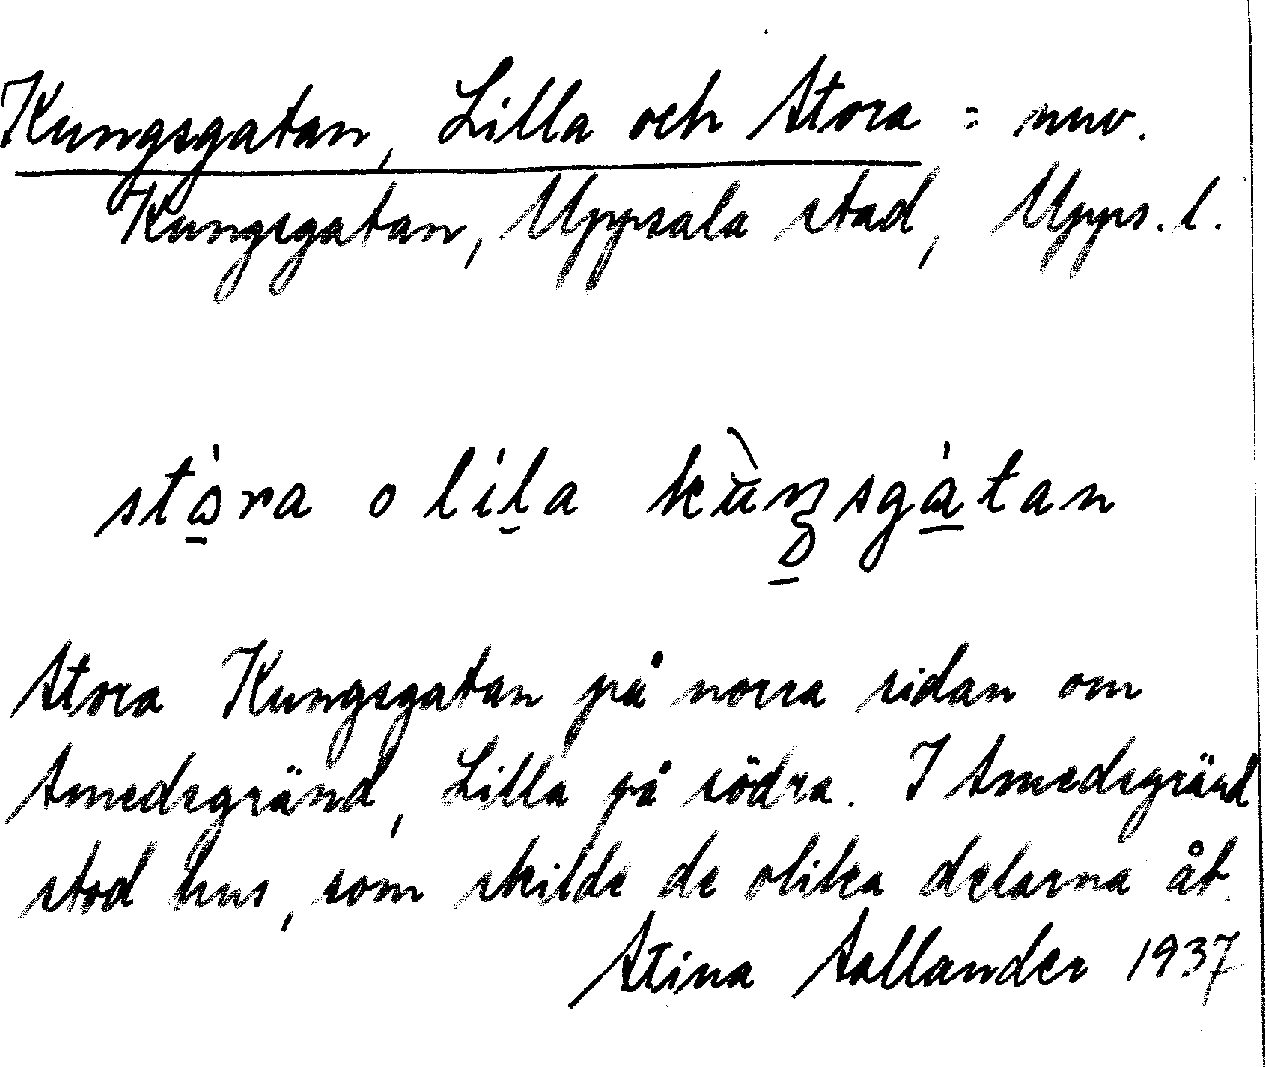 Kungsgatan, Lilla och Stora = nuv.
Kungsgatan, Uppsala stad, Upps. l.
stora o lila kuŋsgatan
Stora Kungsgatan på norra sidan om
Smedsgränd, Lilla på södra. I Smedsgränd
stod hus, som skilde de olika delarna åt.
Stina Sallander 1937